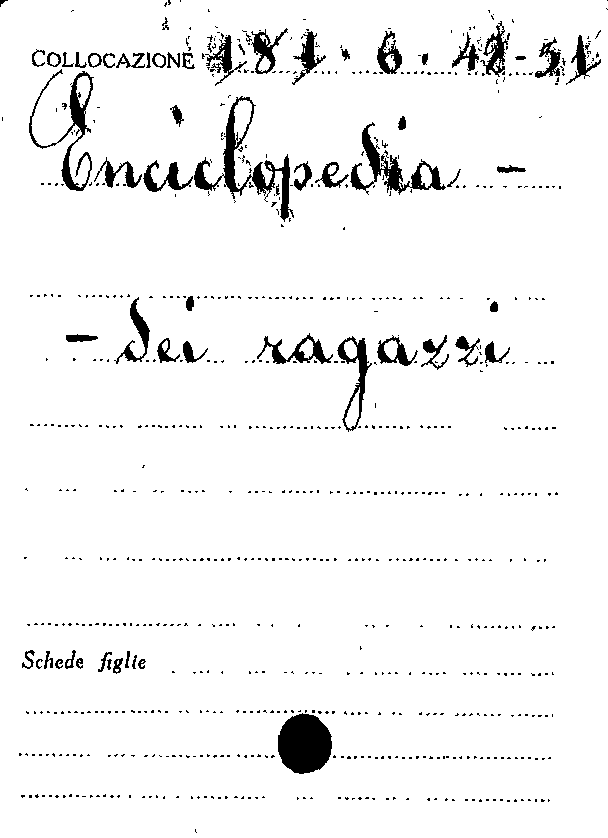 COLLOCAZIONE 181.6.48-51
Enciclopedia -
- dei ragazzi
Schede figlie